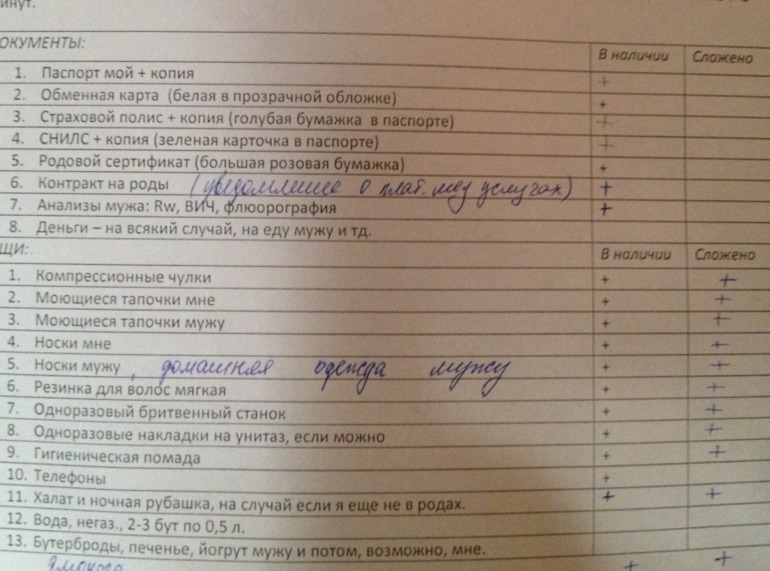 инут.
ОКУМЕНТЫ: В наличии Сложено
1. Паспорт мой + копия +
2. Обменная карта (белая в прозрачной обложке) +
3. Страховой полис + копия (голубая бумажка в паспорте) +
4. СНИЛС + копия (зеленая карточка в паспорте) +
5. Родовой сертификат (большая розовая бумажка) +
6. Контракт на роды (уведомление о плат. мед услугах) +
7. Анализы мужа: Rw, ВИЧ, флюорография +
8. Деньги – на всякий случай, на еду мужу и тд.
ЩИ: В наличии Сложено
1. Компрессионные чулки + +
2. Моющиеся тапочки мне + +
3. Моющиеся тапочки мужу + +
4. Носки мне + +
5. Носки мужу, домашняя одежда мужу + +
6. Резинка для волос мягкая + +
7. Одноразовый бритвенный станок + +
8. Одноразовые накладки на унитаз, если можно + +
9. Гигиеническая помада + +
10. Телефоны +
11. Халат и ночная рубашка, на случай если я еще не в родах. + +
12. Вода, негаз., 2-3 бут по 0,5 л.
13. Бутерброды, печенье, йогрут мужу и потом, возможно, мне.
+ +